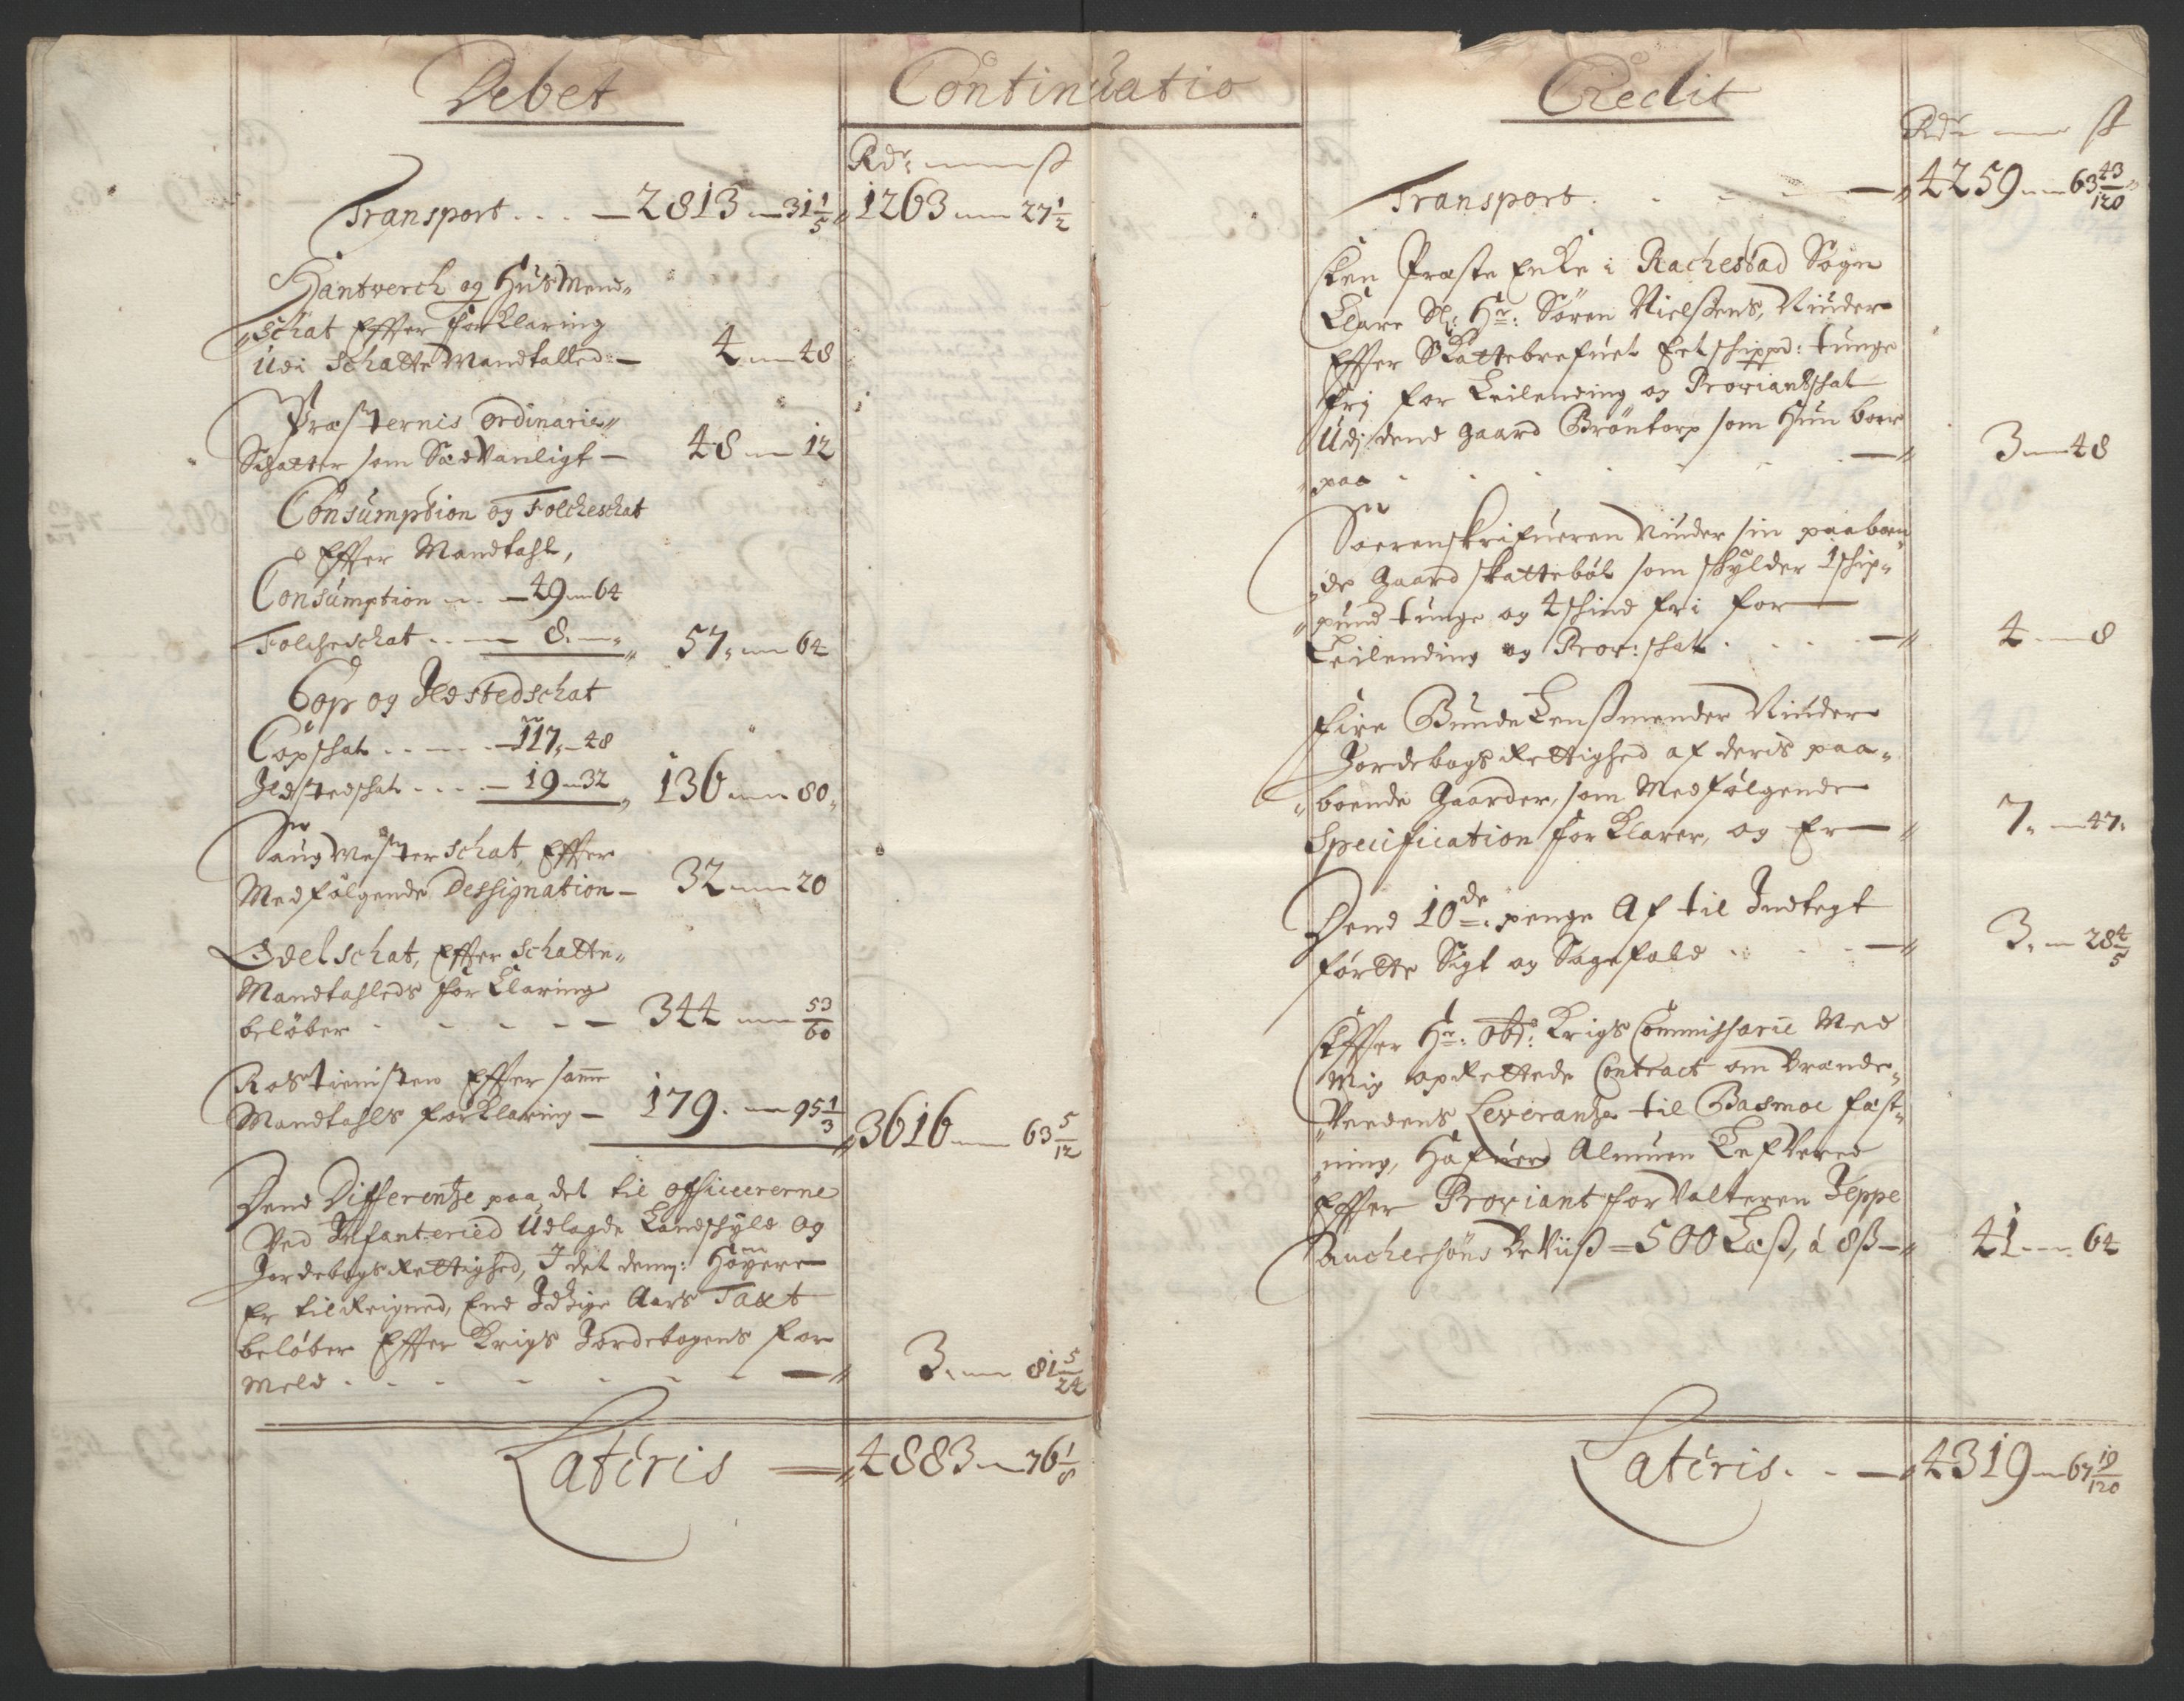 Debet
Continuatio
Rdr ß
Transport . . . — 2813 — 31 1/5 „ 1263 — 27 1/2
Hantverch og Huusmend„
„schat Effter forklaring
Udi Schatte Mandtalled: — 4 — 48
Præsternis ordinarie„
Schatter som Sædvanligt — 48 — 12
Consumption og Folcheschat
Effter Mandtahl,
Consumption — . — 49 — 64
Folcheschat . . — 8. — „ 57 „ — 64
Cop og Ildstedschat
Copschat . . — . — 117 „ — 48
Ildstedschat . . . . — 19 — 32 „ 136 — 80 „
Saugmesterschat, Effter
Medfølgende Dessignation — 32 — 20
Odelschat, Effter Schatte„
Mandtahleds forklaring
beløber - - - - — 344 — 53/60
Rostienisten Effter samme
Mandtahls forklaring — 179. — 95 1/3 „ 3616 — 63 5/12
Dend Differentze paa det til officererne
Ved Infanteried Udlagde Landschyld og
Jordebogs Rettighed, I det demj: Høyere
Er tilReigned, End Idtzige Aars Taxt
beløber Effter Krigs Jordebogens for
Meld . - - - - - - — „ 3. — 81 5/24
Lateris — „ 4883 — 76 1/8
Credit
Rdr ß
Transport . . - - — „ 4259 — 63 43/120 „
Een Præste Enke i Rachestad Sogn
Clare Sl: Hr: Søren Nielsens, Niuder
Effter Skattebrefuet Eet schippd: tunge
frj for Leilending og Proviantschat
Udj dend gaard Brøntorp som Hun boer
„ paa . . . . . — „ 3 — 48
Sorenskrifueren Niuder sin paaboen„
„de Gaard skattebøl som skylder 1 schip„
„pund tunge og 4 schind fri for —
Leilending og Prov: schat . . . — „ 4 — 8
Fire Bunde Lensmender Niuder
Jordebogs Rettighed af deris paa„
„boende Gaarder, som Medfølgende
Specification forklarer, og Er — „ 7 „ — 47 „
Dend 10de: penge Af til Indtegt
førtte Sigt og Sagefald . . . — „ 3 „ — 28 4/5
Effter Hr: Obr: Krigs Commissarie Med
Mig opRettede Contract om Brænde„
„Veedens Leverantze til Basmoe fæst„
„ning, Hafuer Almuen Lefvered
Effter Proviantforvalteren Jeppe
Sauchersøns Beviis = 500 Læß, á 8 ß — „ 41 — 64
Lateris . - — „ 4319 — 67 19/120